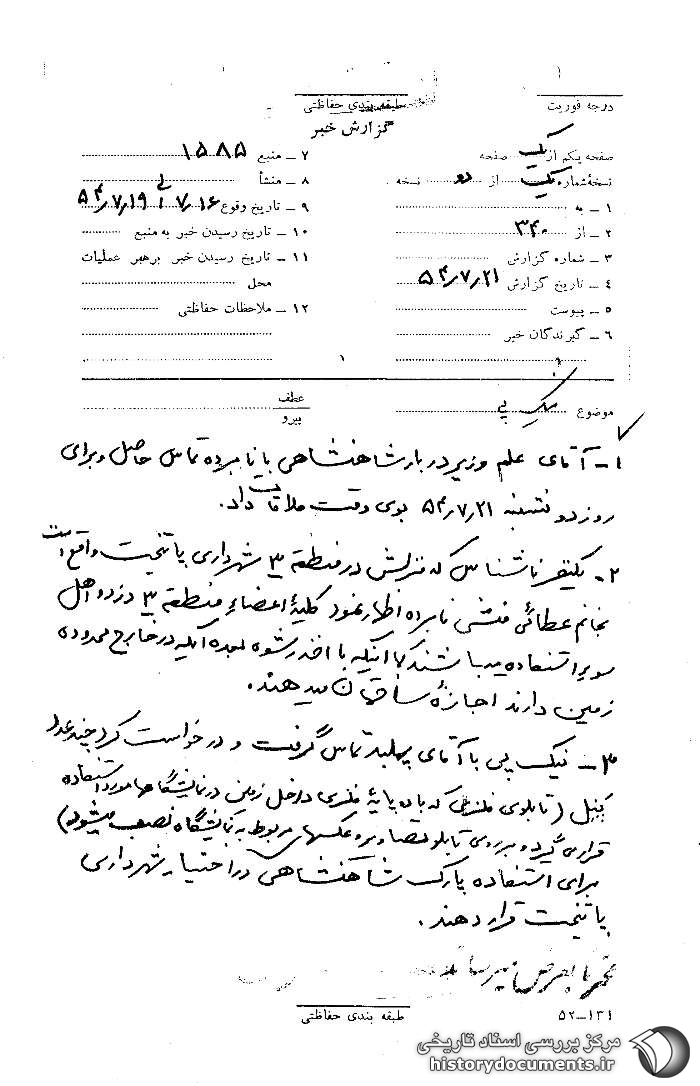 درجه فوریت
طبقه بندی حفاظتی
گزارش خبر
صفحه یکم از یک صفحه
نسخه شماره یک از دو نسخه
۱ – به
۲ – از ۳۴۰
۳ – شماره گزارش
۴ – تاریخ گزارش ۵۴٫۷٫۲۱
۵ – پیوست
۶ – گیرندگان خبر
۷ – منبع ۱۵۸۵
۸ – منشأ
۹ – تاریخ وقوع ۷٫۱۶ الی ۵۴٫۷٫۱۹
۱۰ – تاریخ رسیدن خبر به منبع
۱۱ – تاریخ رسیدن خبر برهبر عملیات
محل
۱۲ – ملاحظات حفاظتی
موضوع نیک پی
عطف
پیرو
۱– آقای علم وزیر دربار شاهنشاهی با نامبرده تماس حاصل و برای
روز دوشنبه ۵۴٫۷٫۲۱ بوی وقت ملاقات داد.
۲– یکنفر ناشناس که منزلش در منطقه ۳ شهرداری پایتخت واقع است
بخانم عطائی منشی نامبرده اظهار نمود کلیهٔ اعضاء منطقه ۳ دزد و اهل
سوء استفاده میباشند کما اینکه با اخذ رشوه بعده ایکه در خارج محدوده
زمین دارند اجازهٔ ساختمان میدهند.
۳– نیک پی با آقای پهلبد تماس گرفت و درخواست کرد چند عدد
پنل (تابلوی فلزی که با پایهٔ فلزی داخل زمین در نمایشگاهها مورد استفاده
قرار میگیرد و بر روی تابلو تصاویر و عکسهای مربوط به نمایشگاه نصب میشود)
برای استفاده پارک شاهنشاهی در اختیار شهرداری
پایتخت قرار دهند.
طبقه بندی حفاظتی
۵۲–۱۳۱
مرکز بررسی اسناد تاریخی
historydocuments.ir